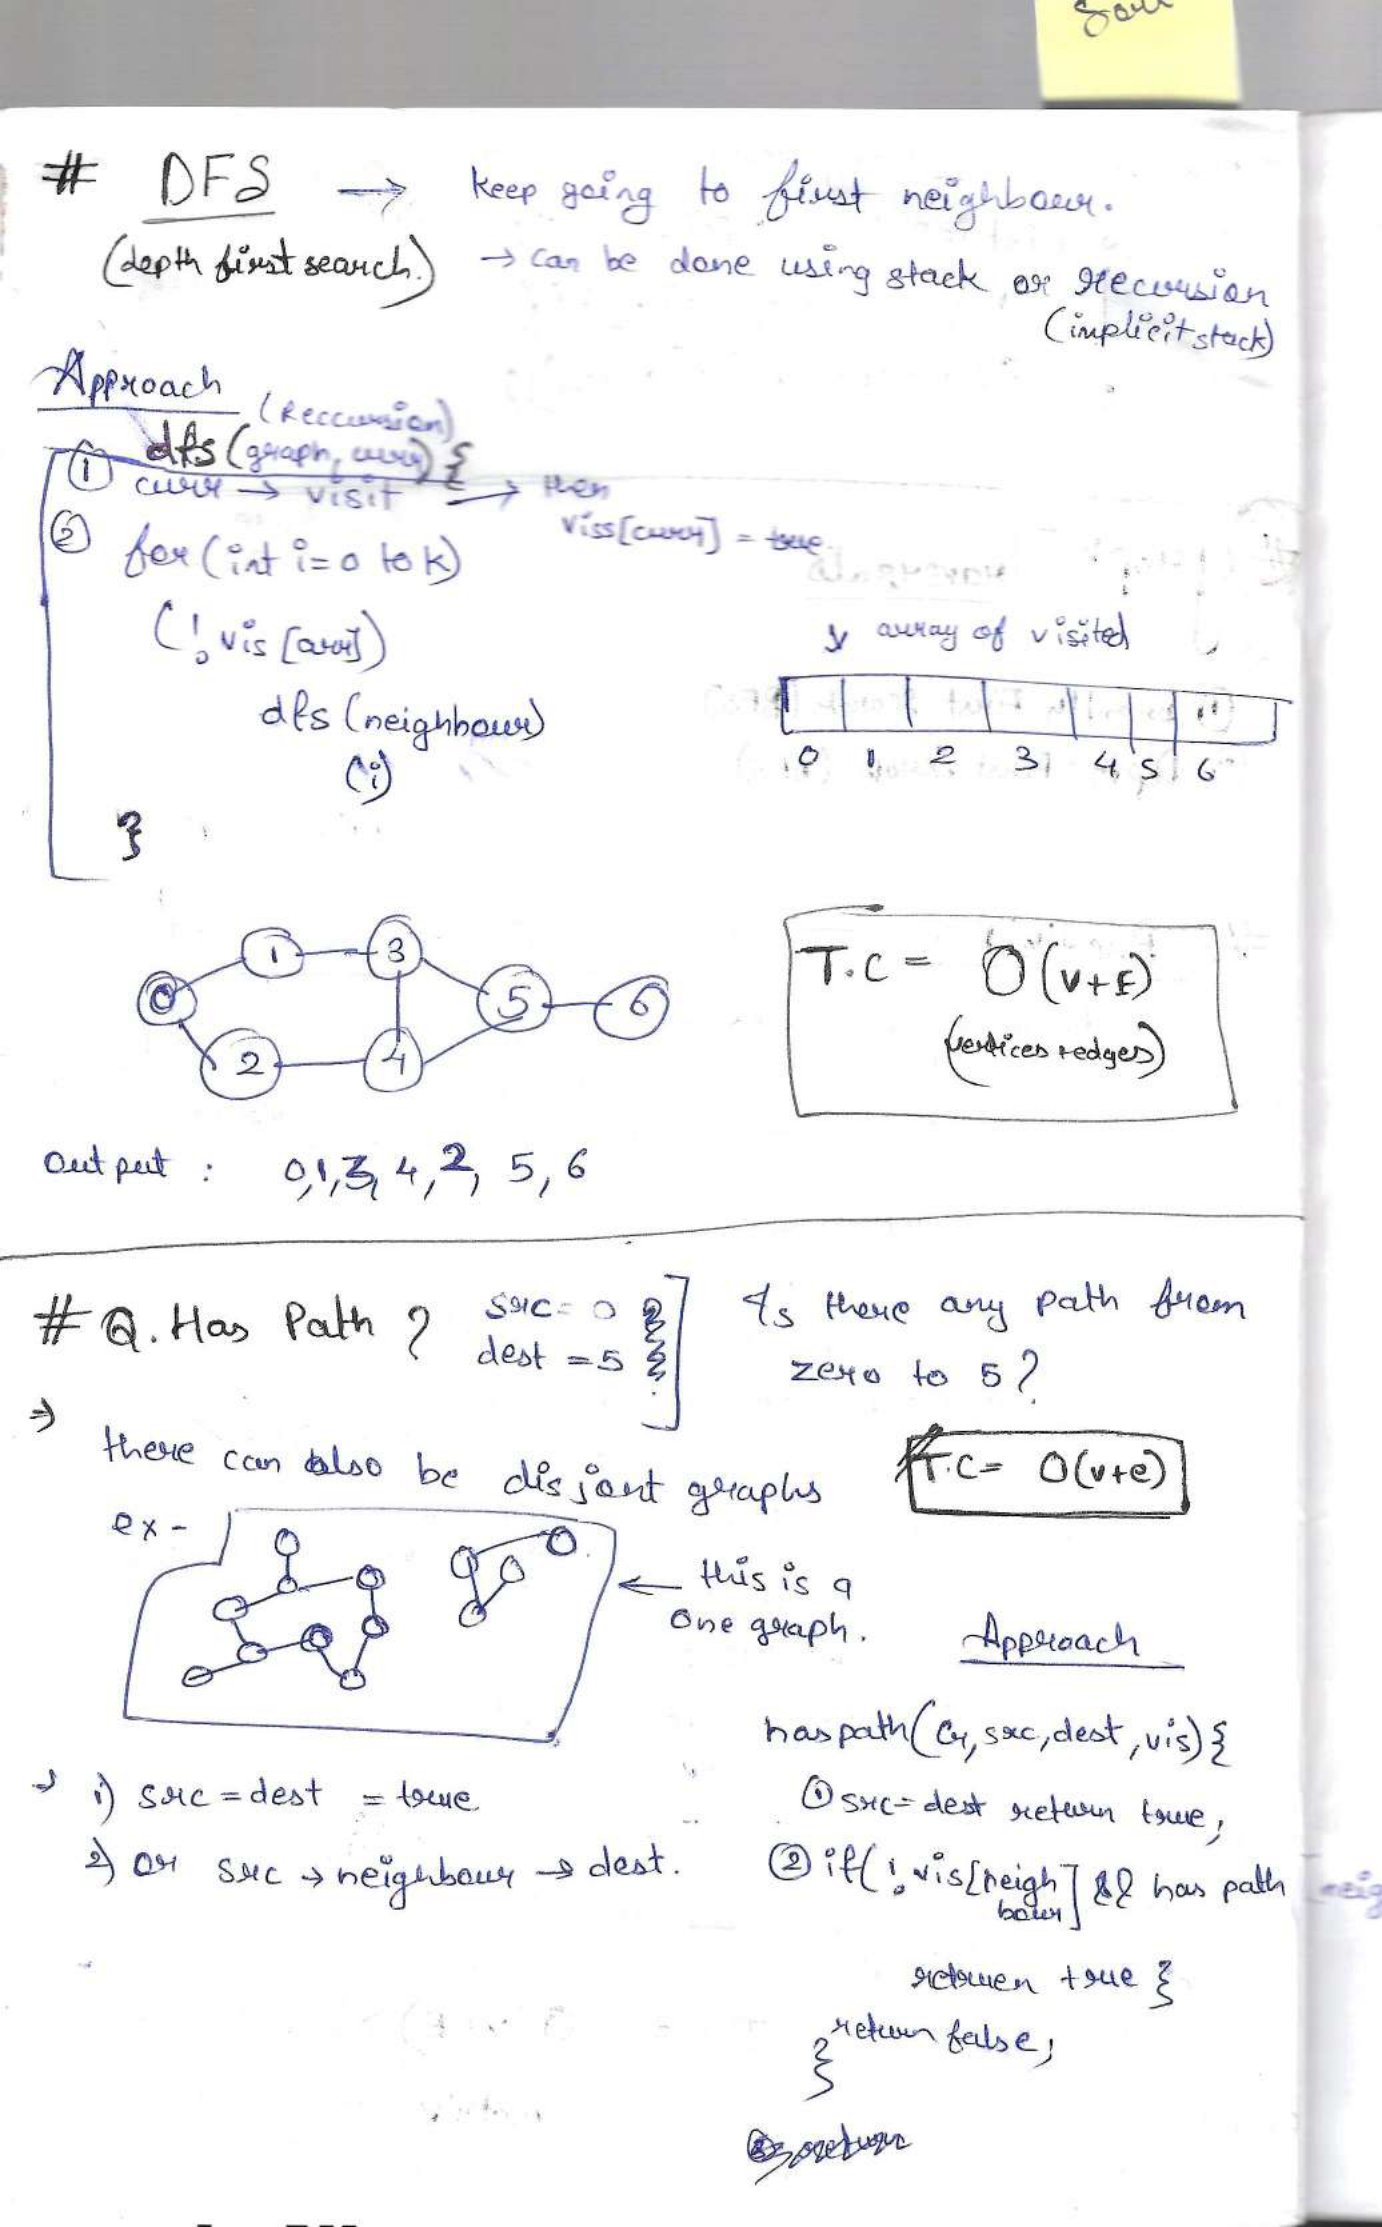 # DFS → keep going to first neighbour.
(depth first search.) → can be done using stack or recursion
(implicit stack)
Approach
(Reccursion)
dfs (graph, curr) {
① curr → visit → then
viss[curr] = true
② for (int i=0 to k)
(! vis [arr])
dfs (neighbour)
(i)
}
↓ array of visited
0 1 2 3 4 5 6
1 3
0 5 6
2 4
T.C = O(V+E)
(vertices + edges)
Output : 0,1,3, 4, 2, 5, 6
# Q. Has Path ? src = 0
dest = 5
Is there any path from
zero to 5?
⇒ there can also be disjont graphs
T.C = O(v+e)
ex -
← this is a
one graph.
→ 1) src = dest = true
2) or src → neighbour → dest.
Approach
haspath (G, src, dest, vis) {
① src = dest return true;
② if( ! vis[neighbour] && has path
return true }
return false;
}